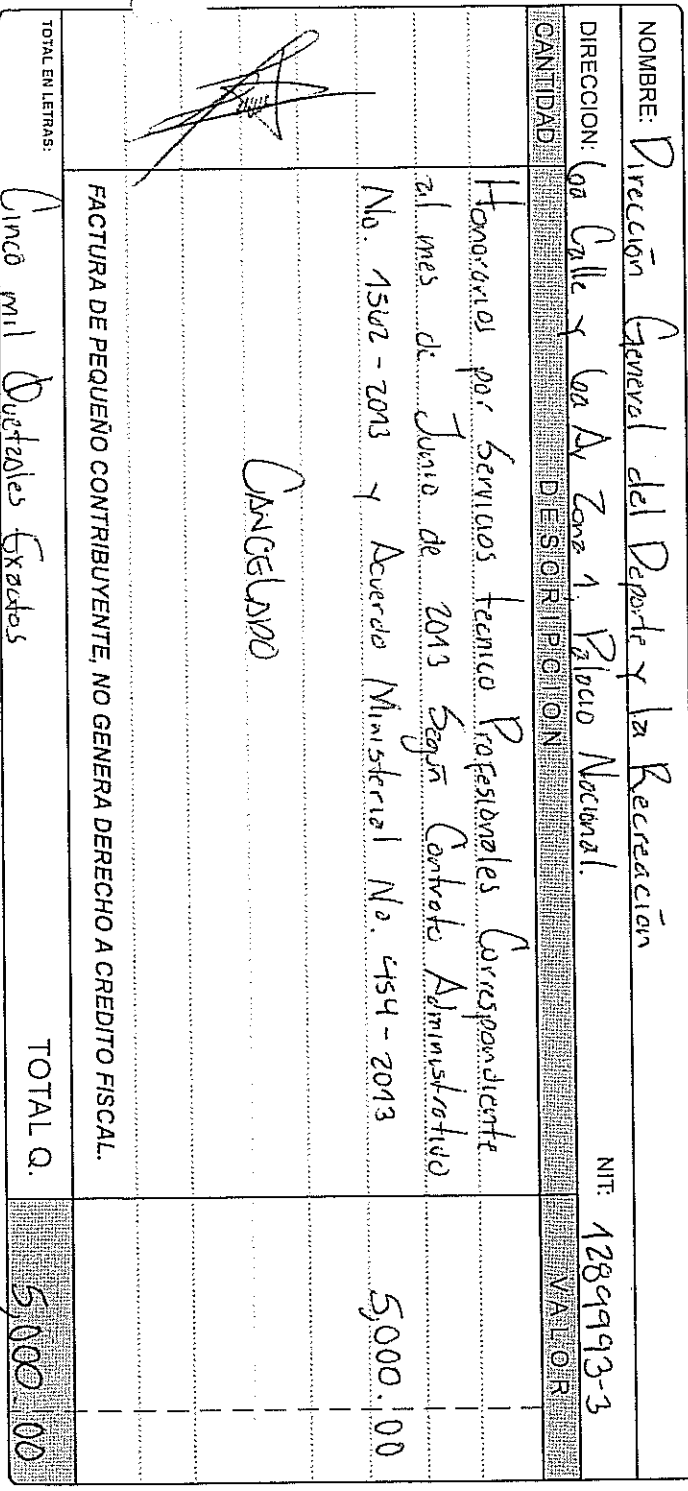 NOMBRE: Dirección General del Deporte y la Recreación
DIRECCION: 6a Calle y 6a Av Zona 1, Palacio Nacional. NIT: 1289993-3
CANTIDAD DESCRIPCION VALOR
Honorarios por Servicios tecnico Profesionales Correspondiente
al mes de Junio de 2013 Según Contrato Administrativo
No. 1562-2013 y Acuerdo Ministerial No. 454-2013 5,000.00
CANCELADO
FACTURA DE PEQUEÑO CONTRIBUYENTE, NO GENERA DERECHO A CREDITO FISCAL.
TOTAL EN LETRAS: Cinco mil Quetzales Exactos TOTAL Q. 5,000.00